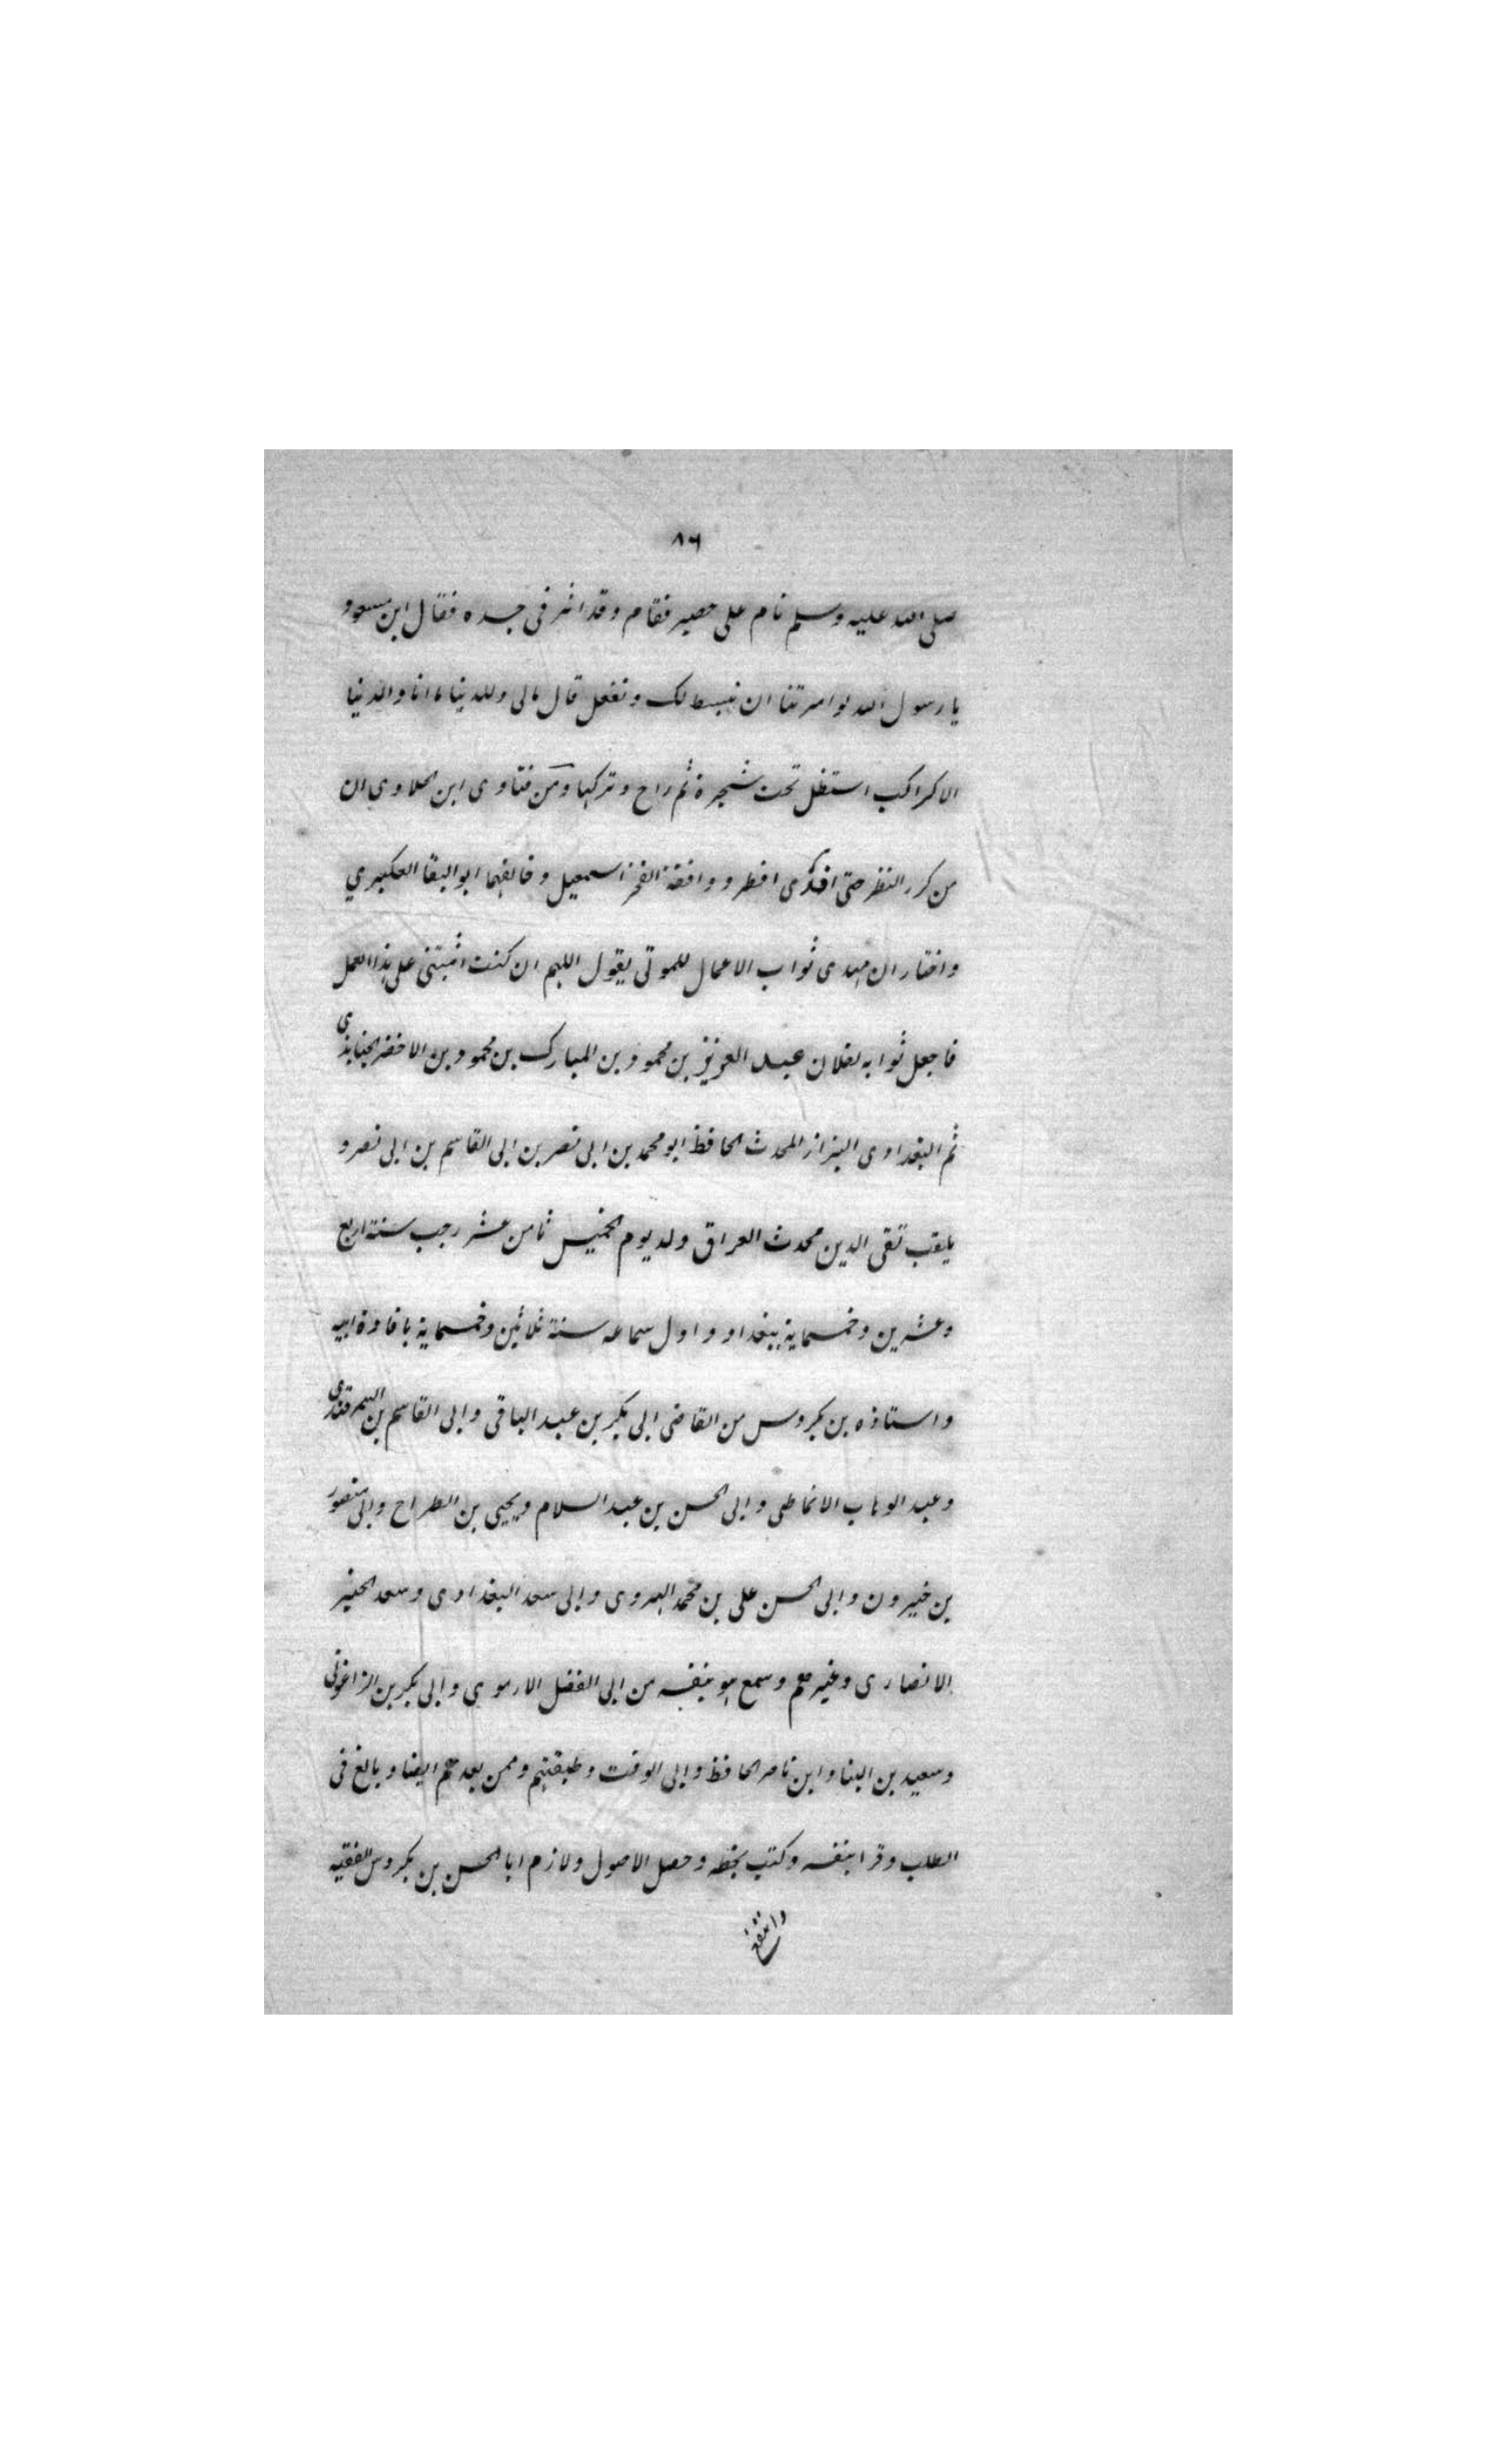 ٨٦
صلى الله عليه وسلم نام على حصير فقام وقد اثر فى جسده فقال ابن مسعود
يا رسول الله لو امرتنا ان نبسط لك ونفعل قال مالى وللدنيا ما انا والدنيا
الا كراكب استظل تحت شجرة ثم راح وتركها ومن فتاوى ابن الحلاوي ان
من كرر النظر حتى افطر ووافقه الفخر اسمعيل وخالفهما ابو البقا العكبري
واختار ان مهدى ثواب الاعمال للموتى يقول اللهم ان كنت اثبتنى على هذا العمل
فاجعل ثوابه لفلان عبد العزيز بن محمود بن المبارك بن محمود بن الاخضر الجنابذى
ثم البغدادى البزاز المحدث الحافظ ابو محمد بن ابى نصر بن ابى القاسم بن ابى نصر و
يلقب تقى الدين محدث العراق ولد يوم الخميس ثامن عشر رجب سنة اربع
وعشرين وخمسماية ببغداد و اول سماعه سنة ثلاثين وخمسماية بافادة ابيه
واستاذه بن بكروس من القاضى ابى بكر بن عبد الباقى وابى القاسم بن السمرقندى
وعبد الوهاب الانماطى وابى الحسن بن عبد السلام ويحيى بن الطراح وابى منصور
بن خيرون وابى الحسن على بن محمد الهروى وابى سعد البغدادى وسعد الخير
الانصارى وغيرهم وسمع هو بنفسه من ابى الفضل الارموي وابى بكر بن الزاغونى
وسعيد بن البنا وابن ناصر الحافظ وابى الوقت وطبقتهم وممن بعدهم ايضا وبالغ فى
الطلب وقرا بنفسه وكتب بخطه وحصل الاصول ولازم ابا الحسن بن بكروس الفقيه
وانتفع